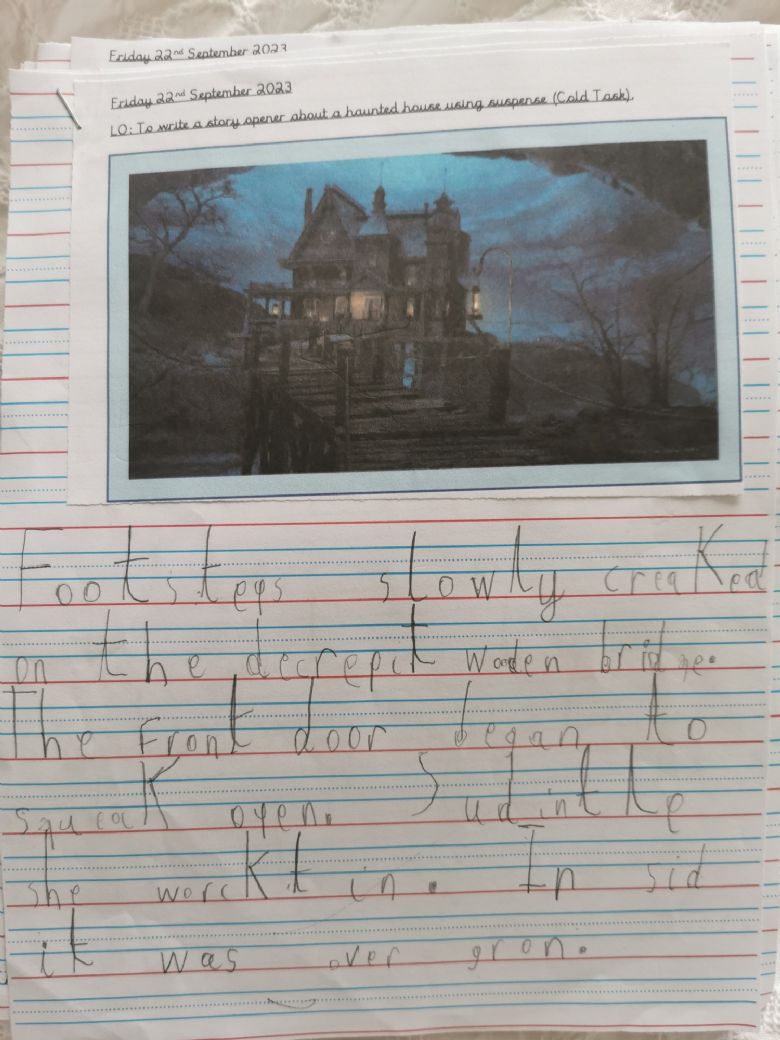 Friday 22nd September 2023
Friday 22nd September 2023
LO: To write a story opener about a haunted house using suspense (Cold Task).
Footsteps slowly creaked
on the decrepit wooden bridge.
The front door began to
squeak open. Sudintle
she worckt in. In sid
it was over gron.